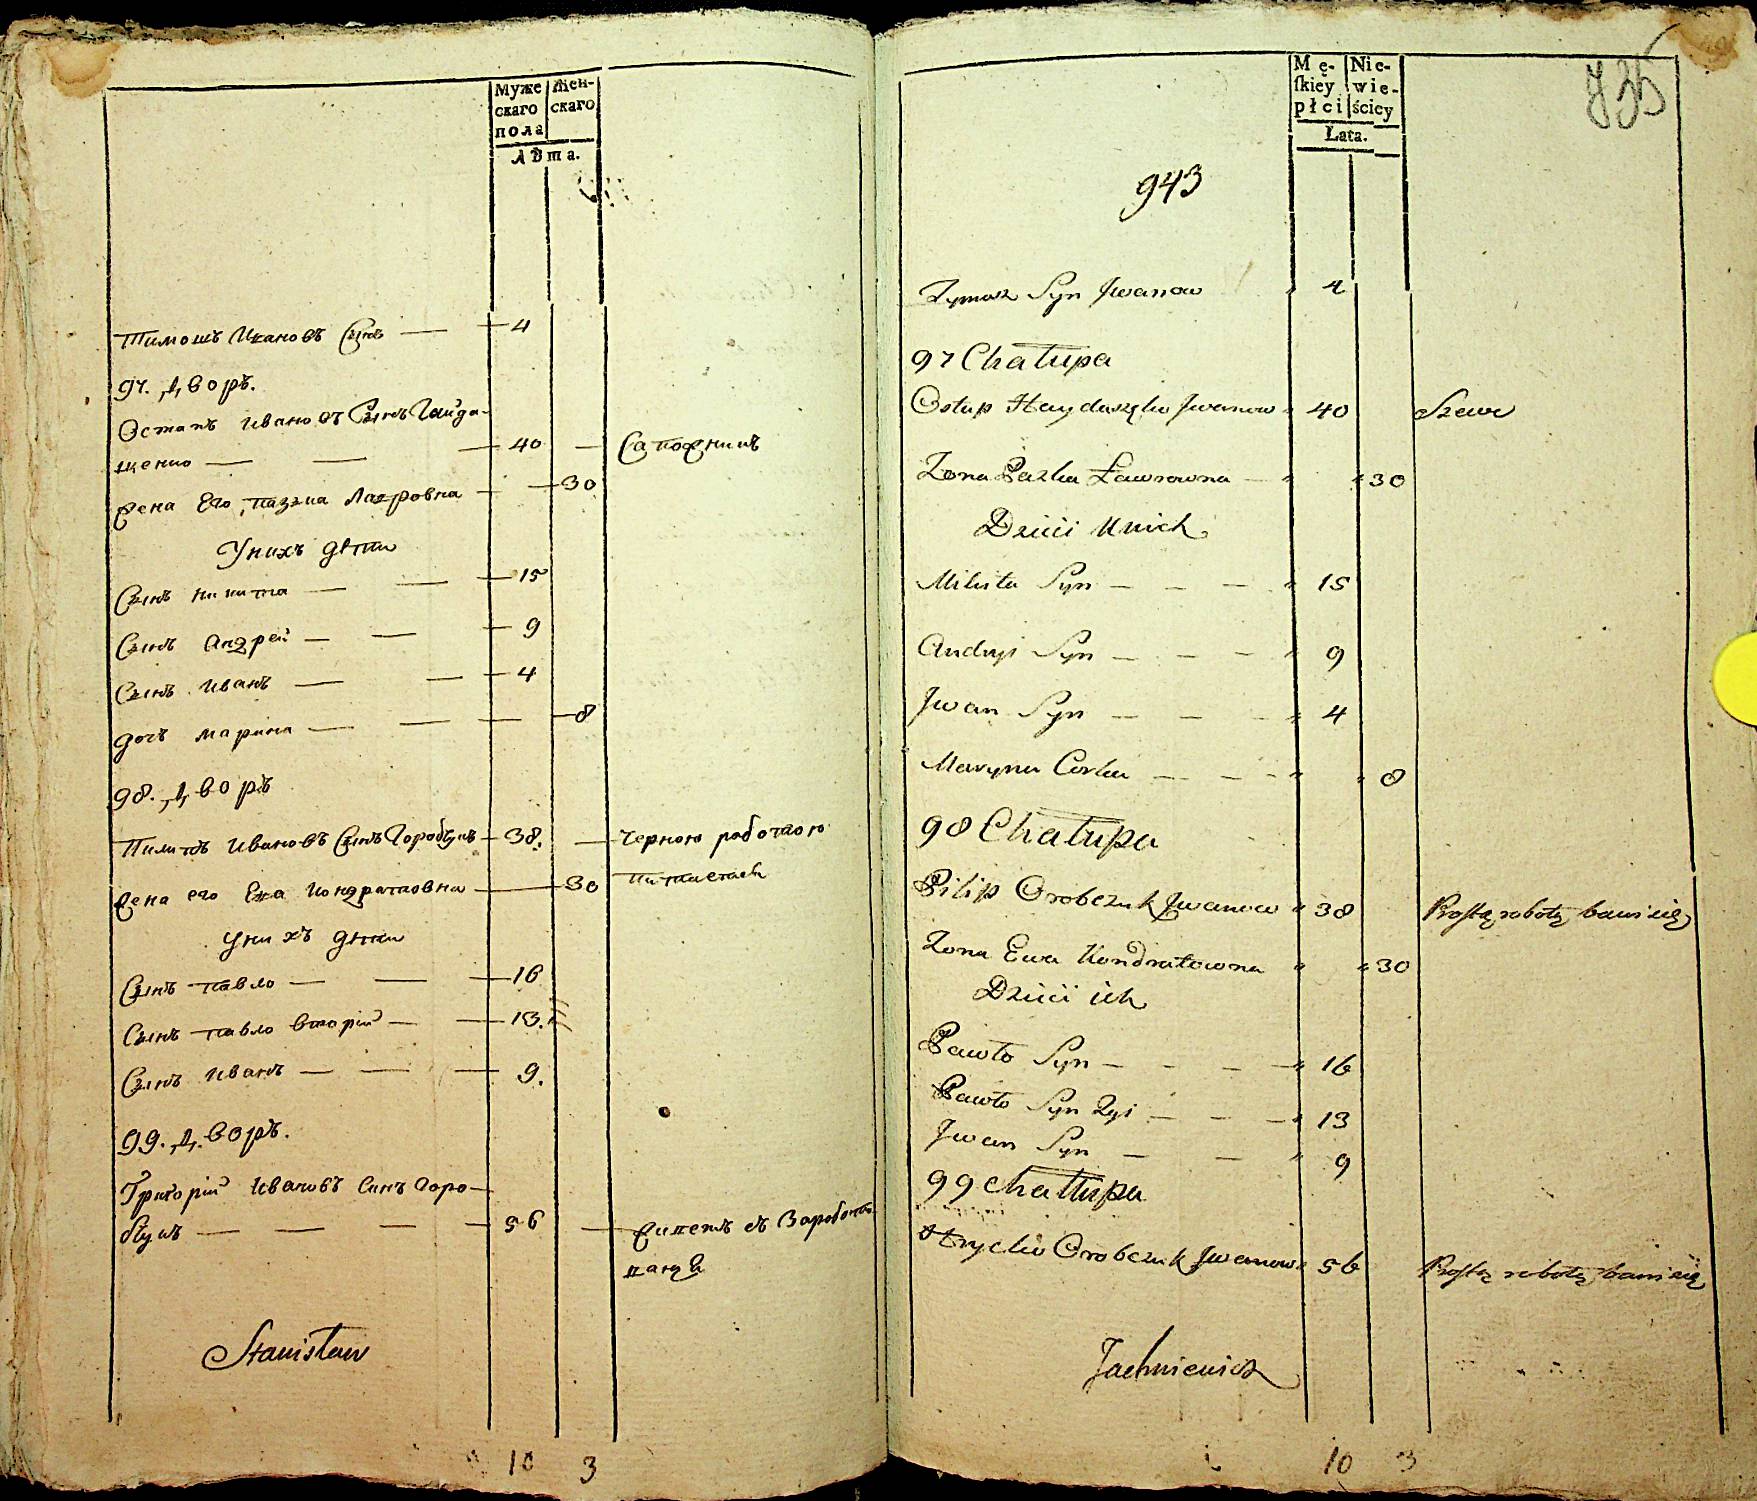 Муже
скаго
пола
Жен-
скаго
лѣта.
Тимошъ Ивановъ Сынъ — 4
97. Дворъ.
Остапъ Ивановъ Сынъ Гайда-
щенко — — 40 — Сапожникъ
Жена Его Пазька Лавровна — 30
У нихъ дѣти
Сынъ Никита — — 15
Сынъ Андрей — — 9
Сынъ Иванъ — — 4
дочь Марина — — 8
98. Дворъ
Пилипъ Ивановъ Сынъ Горобчукъ 38. — Черною работою
питается
Жена его Ева Кондратовна — 30
у нихъ дѣти
Сынъ Павло — — 16
Сынъ Павло вторій — — 13.
Сынъ Иванъ — — 9.
99. Дворъ.
Григорій Ивановъ Синъ Горо-
бчукъ — — — 56 — живетъ съ Заработка
Stanisław
10 3
735
Mę-
ſkiey
płci
Nie-
wie-
ściey
Lata.
943
Tymosz Syn Jwanow 4
97 Chałupa
Ostap Haydaszko Jwanow 40 Szewc
Zona Pazka Ławrowna — 30
Dzieci U nich
Mikita Syn — — — 15
Andryi Syn — — — 9
Jwan Syn — — — 4
Maryna Corka — — — 8
98 Chałupa
Pilip Orobczuk Jwanow 38 Prostą robotą bawi się
Zona Ewa Kondratowna 30
Dzieci ich
Pawło Syn — — — 16
Pawło Syn 2gi — — — 13
Jwan Syn — — 9
99 Chałupa
Hryćko Orobczuk Jwanow 56 Prostą robotą bawi się
Jachniewicz
10 3